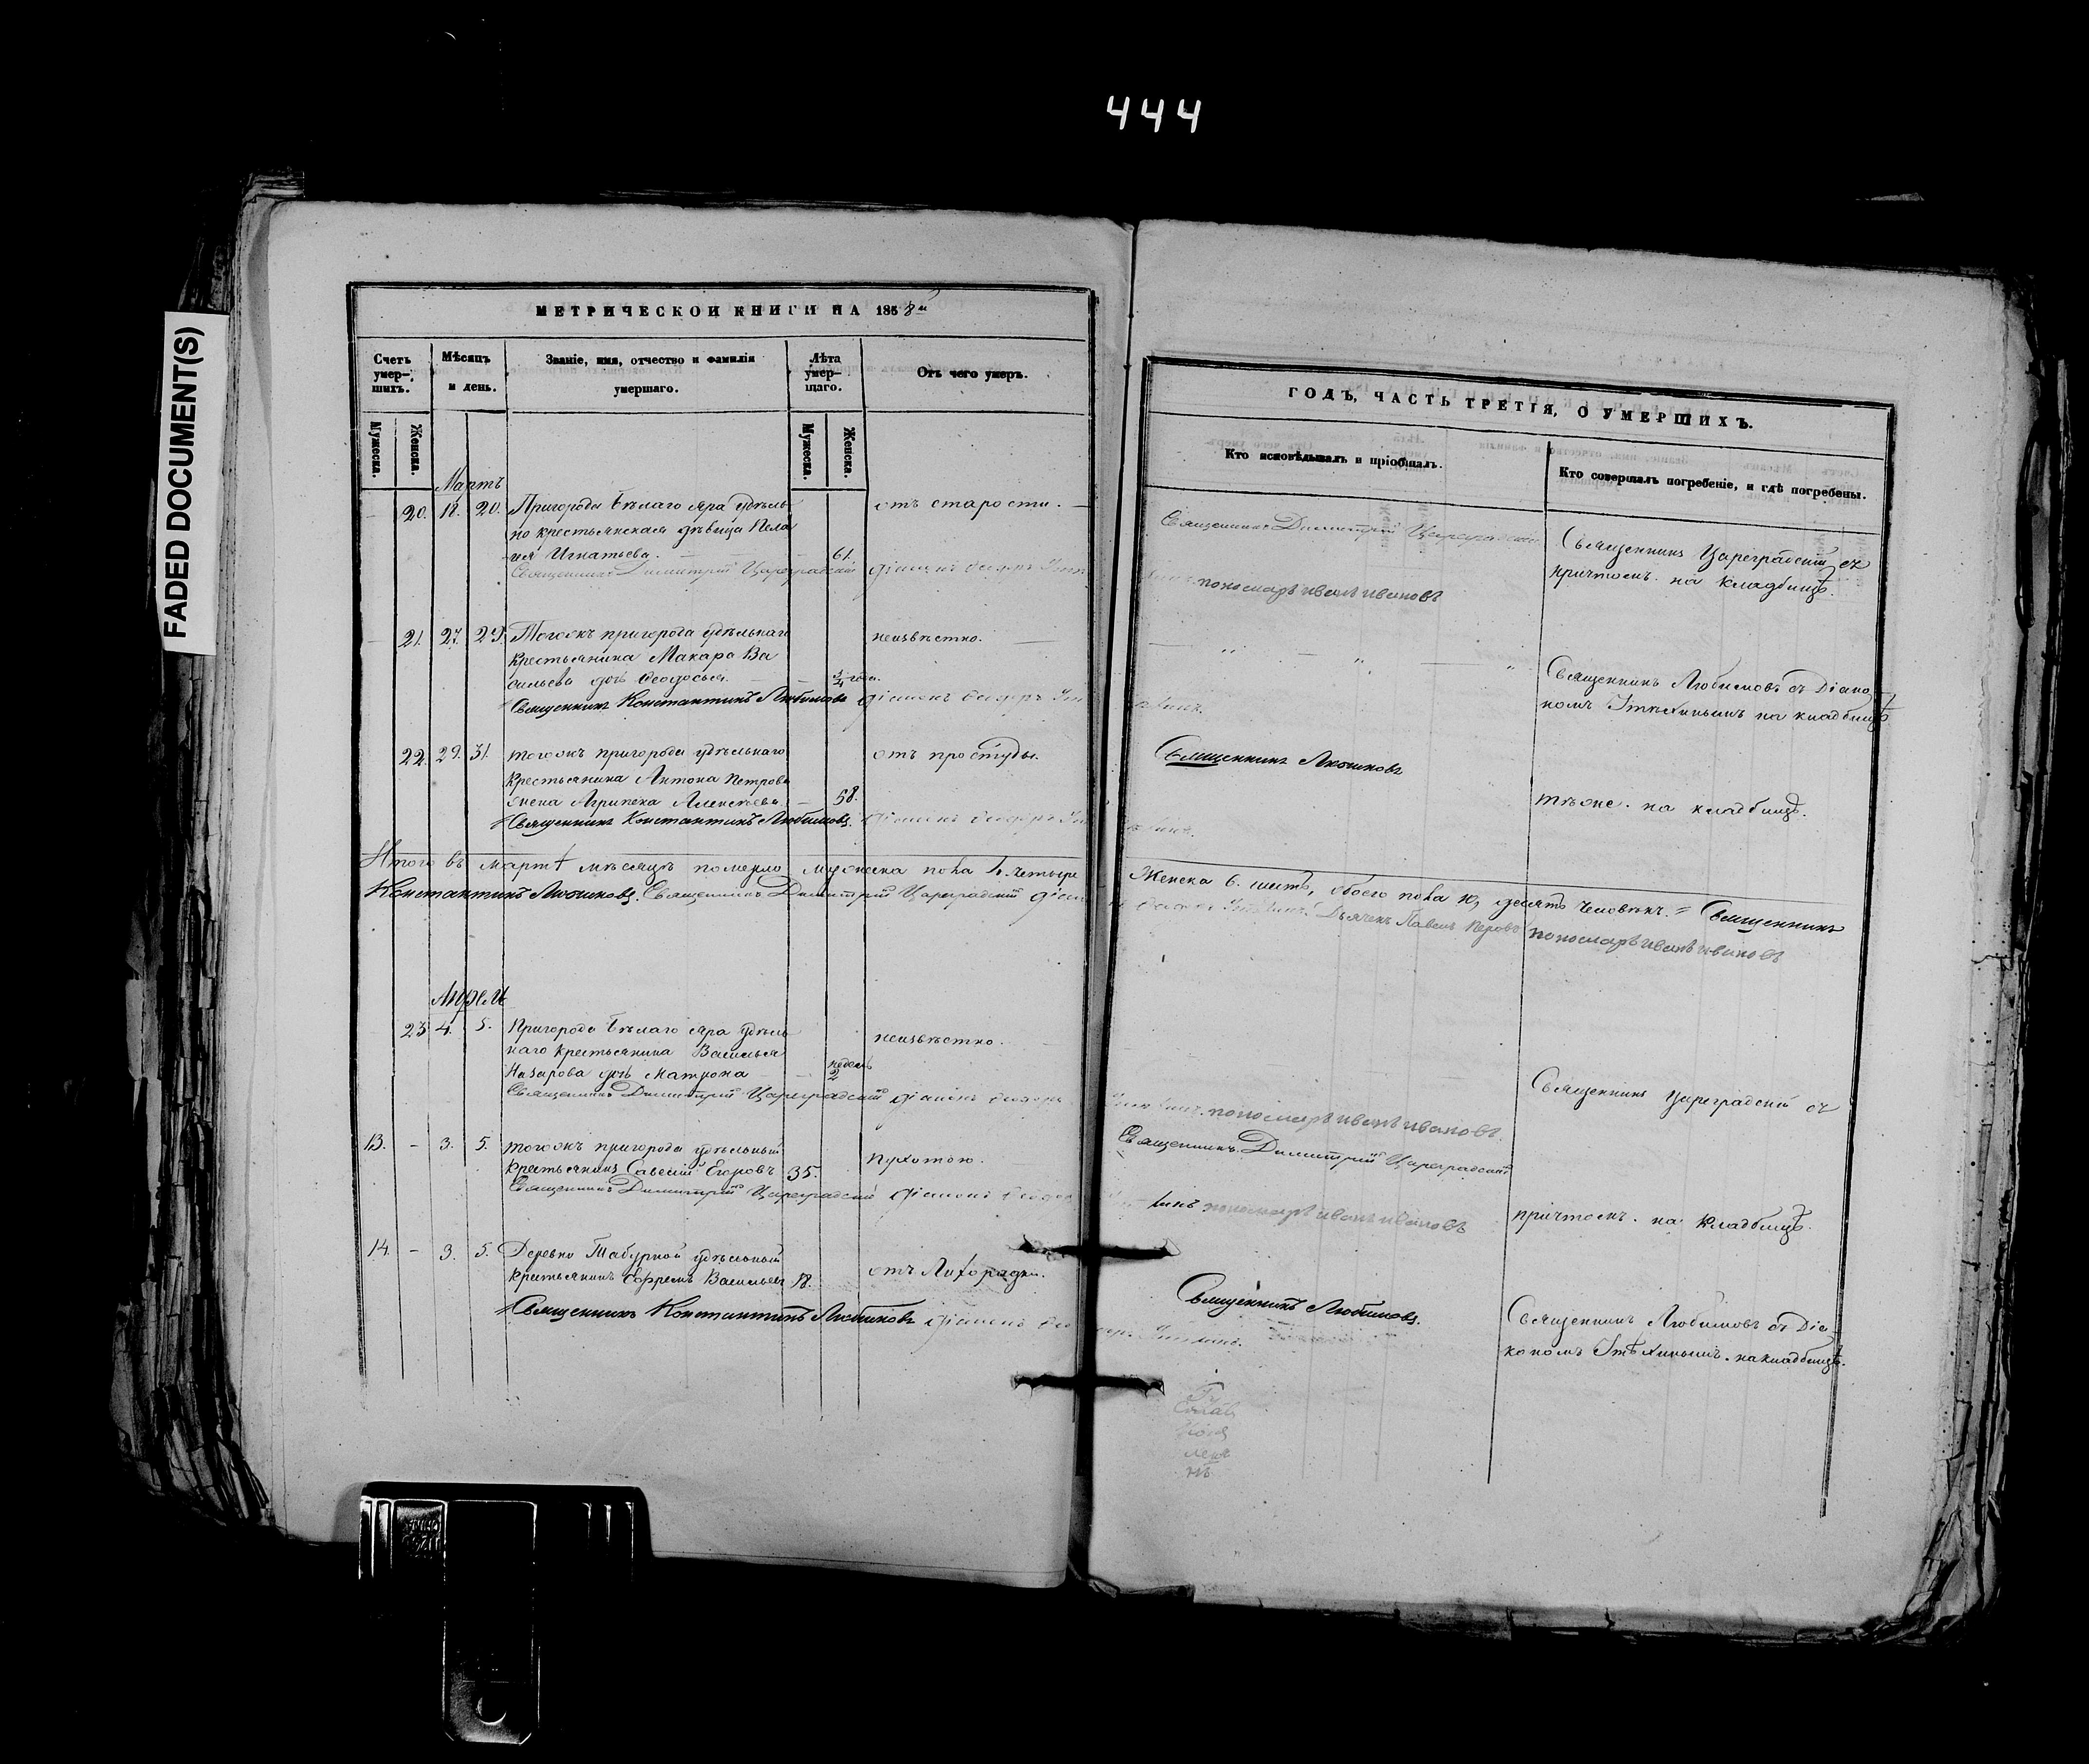 444
FADED DOCUMENT(S)
МЕТРИЧЕСКОЙ КНИГИ НА 1858й
Счетъ умер-шихъ.
Мѣсяцъ и день.
Званіе, имя, отчество и фамилія умершаго.
Лѣта умер-шаго.
Отъ чего умеръ.
Мужеска.
Женска.
Мужеска.
Женска.
Мартъ
20. 18. 20. Пригорода Бѣлаго Яра удѣль
но крестьянская дѣвица Пела
гея Игнатьева. 61. отъ старости.
Священникъ Димитрій Цареградскій діаконъ
21. 27. 29. Тогожъ пригорода удѣльнаго
крестьянина Макара Ва
сильева дочь Ѳеодосья. неизвѣстно.
Священникъ Константинъ Любимовъ діаконъ
22. 29. 31. тогожъ пригорода удѣльнаго
крестьянина Антона Петрова
жена Агрипена Алексѣева. 58. отъ простуды.
Священникъ Константинъ Любимовъ. діаконъ
Итого въ мартѣ мѣсяцѣ померло мужеска пола 4. четыре
Константинъ Любимовъ. Священникъ Димитрій Цареградскій
Апрель
23 4. 5. Пригорода Бѣлаго Яра удѣль
наго крестьянина Василья
Назарова дочь Матрона недель 2 неизвѣстно.
Священникъ Димитрій Цареградскій діаконъ
13. – 3. 5. тогожъ пригорода удѣльный
крестьянинъ Савелій Егоровъ 35.
Священникъ Димитрій Цареградскій діаконъ
14. – 3. 5. Деревни удѣльный
крестьянинъ Ефремъ Васильевъ 18. отъ Лихорадки.
Священникъ Константинъ Любимовъ діаконъ
ГОДЪ, ЧАСТЬ ТРЕТІЯ, О УМЕРШИХЪ.
Кто исповѣдывалъ и пріобщалъ.
Кто совершалъ погребеніе, и гдѣ погребены.
Священникъ Димитрій Цареградскій
пономарь иванъ ивановъ
Священникъ Цареградскій съ
причтомъ. на кладбищѣ.
Священникъ Любимовъ съ Діако
номъ на кладбищѣ
Священникъ Любимовъ
тѣже. на кладбищѣ.
Женска 6. шесть, обоего пола 10, десять человѣкъ. Священникъ
Дьячекъ Павелъ пономарь иванъ ивановъ
пономарь иванъ ивановъ.
Священникъ Цареградскій съ
Священникъ Димитрій Цареградскій
пономарь иванъ ивановъ
причтомъ. на кладбищѣ.
Священникъ Любимовъ.
Священникъ Любимовъ съ Діа
кономъ на кладбищѣ.